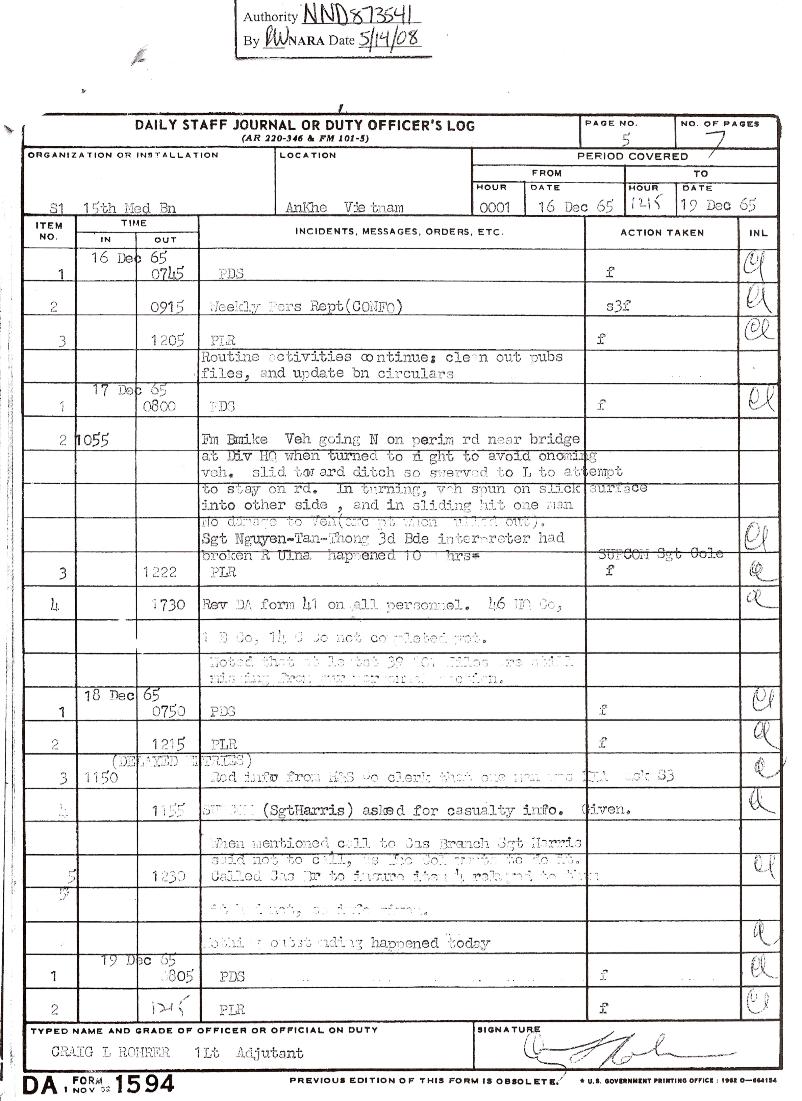 Authority NND873541
By NARA Date 5/14/08
DAILY STAFF JOURNAL OR DUTY OFFICER'S LOG
(AR 220-346 & FM 101-5)
PAGE NO.
5
NO. OF PAGES
7
ORGANIZATION OR INSTALLATION
S1 15th Med Bn
LOCATION
AnKhe Vietnam
PERIOD COVERED
FROM
TO
HOUR
DATE
HOUR
DATE
0001
16 Dec 65
1215
19 Dec 65
ITEM NO.
TIME
IN
OUT
INCIDENTS, MESSAGES, ORDERS, ETC.
ACTION TAKEN
INL
16 Dec 65
1 0745 PDS f
2 0915 Weekly Pers Rept(CONFO) s3f
3 1205 PLR f
Routine activities continue; clean out pubs
files, and update bn circulars
17 Dec 65
1 0800 PDS f
2 1055 Fm Bmike Veh going N on perim rd near bridge
at Div HQ when turned to right to avoid onoming
veh. slid toward ditch so swerved to L to attempt
to stay on rd. In turning, veh spun on slick surface
into other side , and in sliding hit one man
No damage to Veh( when pulled out).
Sgt Nguyen-Tan-Thong 3d Bde interpreter had
broken R Ulna happened 10 hrs= SUPCOM Sgt Cole
3 1222 PLR f
4 1730 Rev DA form 41 on all personnel. 46 Co,
B Co, 14 Co not completed yet.
Noted that at 39 files are still
missing from
18 Dec 65
1 0750 PDS f
2 1215 PLR f
(DELAYED ENTRIES)
3 1150 Rcd info from clerk that one man was S3
4 1155 (SgtHarris) asked for casualty info. Given.
When mentioned call to Cas Branch Sgt Harris
said not to call, as to do it.
5 1230 Called Cas Br to insure item 4 relayed to
info given.
outstanding happened today
19 Dec 65
1 0805 PDS f
2 1215 PLR f
TYPED NAME AND GRADE OF OFFICER OR OFFICIAL ON DUTY
CRAIG L ROHRER 1Lt Adjutant
SIGNATURE
DA FORM 1594
1 NOV
PREVIOUS EDITION OF THIS FORM IS OBSOLETE.
★ U.S. GOVERNMENT PRINTING OFFICE : 1962 O—664184